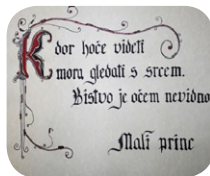 Kdor hoče videti
mora gledati s srcem.
Bistvo je očem nevidno
Mali princ